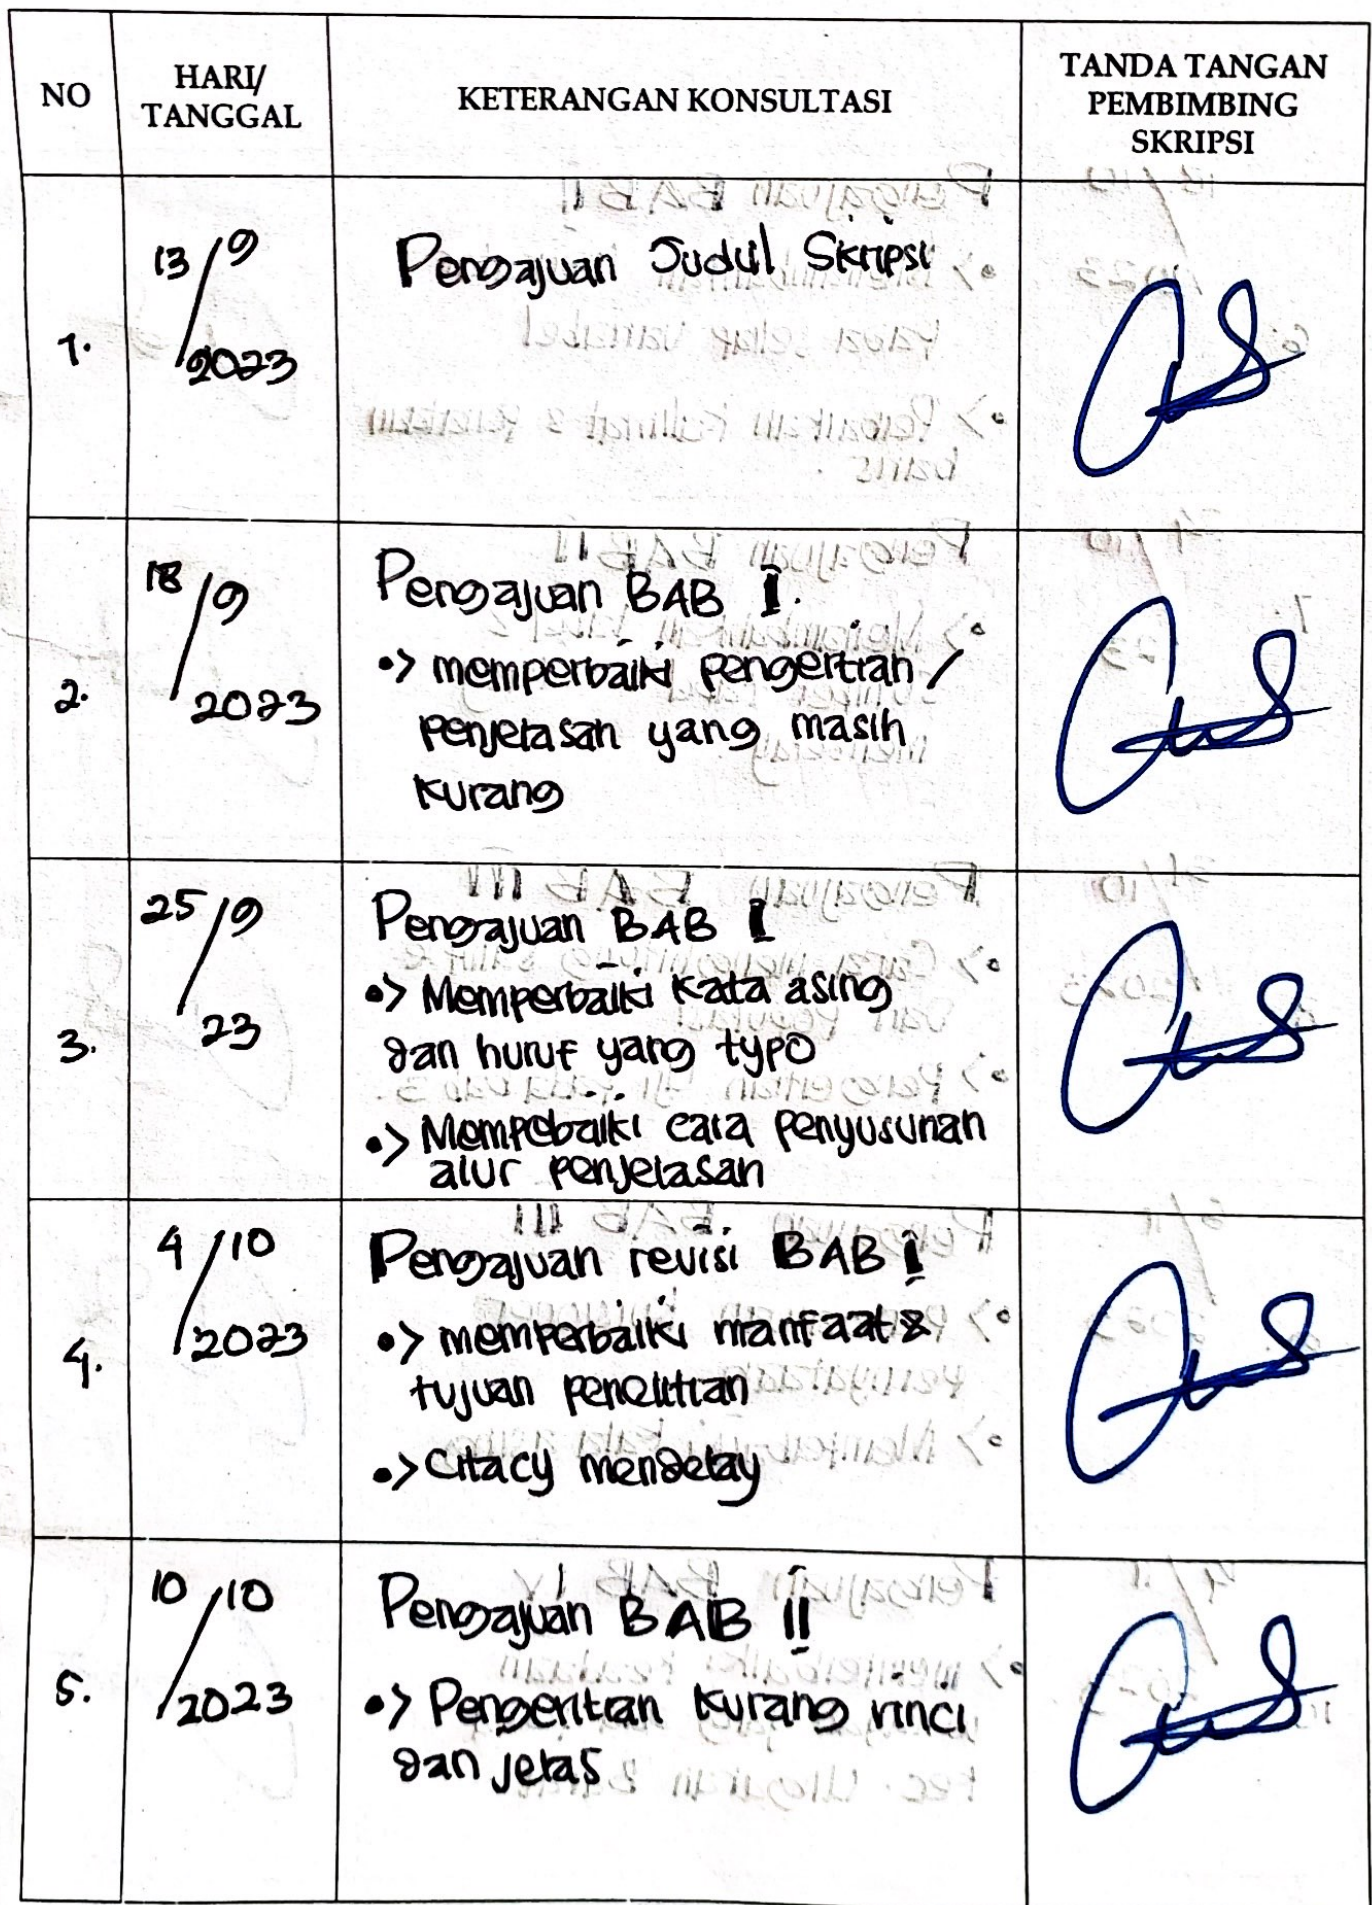 NO
HARI/
TANGGAL
KETERANGAN KONSULTASI
TANDA TANGAN
PEMBIMBING
SKRIPSI
1.
13/9
2023
Pengajuan Judul Skripsi
2.
18/9
2023
Pengajuan BAB I.
•> memperbaiki pengertian /
penjelasan yang masih
kurang
3.
25/9
23
Pengajuan BAB I
•> Memperbaiki kata asing
dan huruf yang typo
•> Mempebaiki cara penyusunan
alur penjelasan
4.
4/10
2023
Pengajuan revisi BAB I
•> memperbaiki manfaat &
tujuan penelitian
•> Citacy mendelay
5.
10/10
2023
Pengajuan BAB II
•> Pengeritian kurang rinci
dan jelas